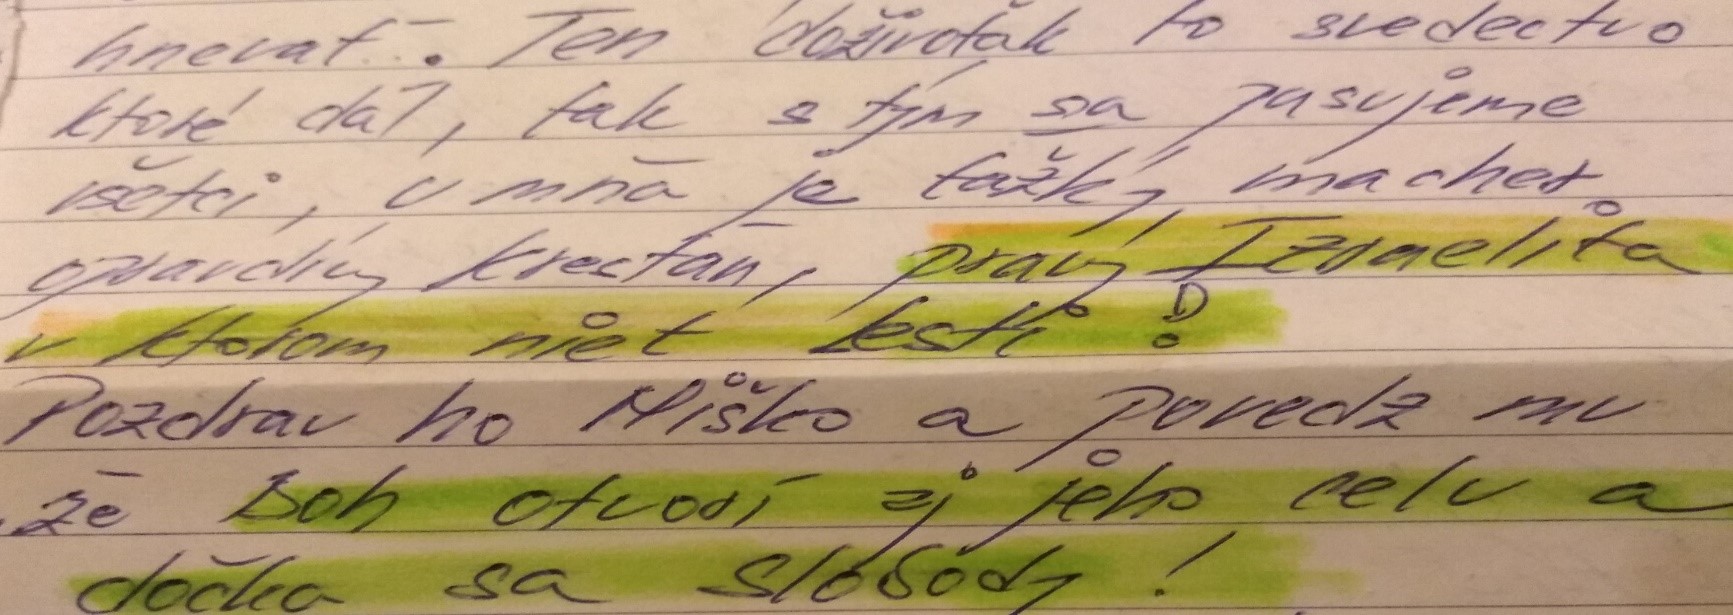 hnevať. Ten doživoťák to svedectvo
ktoré dal, tak s tým sa
všetci, u mňa je ťažký macher
opravdivý kresťan, pravý Izraelita
v ktorom niet ľesti!
Pozdrav ho Miško a povedz mu
že Boh otvorí aj jeho celu a
dočká sa slobody!